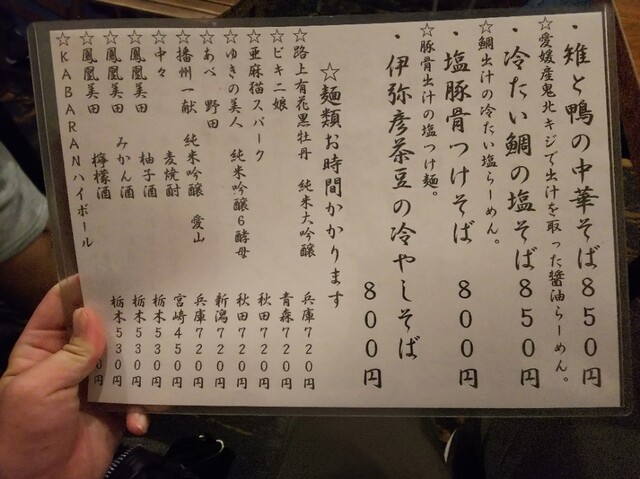 ・雉と鴨の中華そば８５０円
☆愛媛産鬼北キジで出汁を取った醤油らーめん。
・冷たい鯛の塩そば８５０円
☆鯛出汁の冷たい塩らーめん。
・塩豚骨つけそば　８００円
☆豚骨出汁の塩つけ麺。
・伊弥彦茶豆の冷やしそば
８００円
☆麺類お時間かかります
☆路上有花黒牡丹　純米大吟醸　兵庫７２０円
☆ビキニ娘　青森７２０円
☆亜麻猫スパーク　秋田７２０円
☆ゆきの美人　純米吟醸６酵母　秋田７２０円
☆あべ　野田　新潟７２０円
☆播州一献　純米吟醸　愛山　兵庫７２０円
☆中々　麦焼酎　宮崎４５０円
☆鳳凰美田　柚子酒　栃木５３０円
☆鳳凰美田　みかん酒　栃木５３０円
☆鳳凰美田　檸檬酒　栃木５３０円
☆ＫＡＢＡＲＡＮハイボール　０円